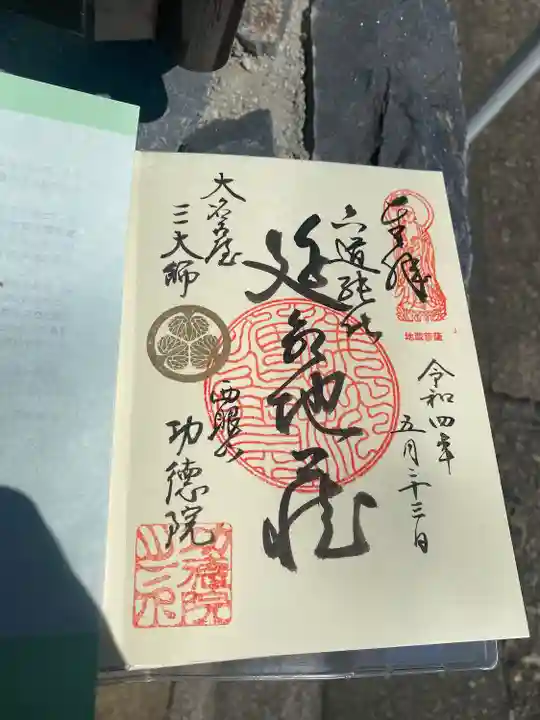 奉拝
地蔵菩薩
令和四年
五月二十三日
六道能化
延命地蔵
大名古屋
三大師
功徳院